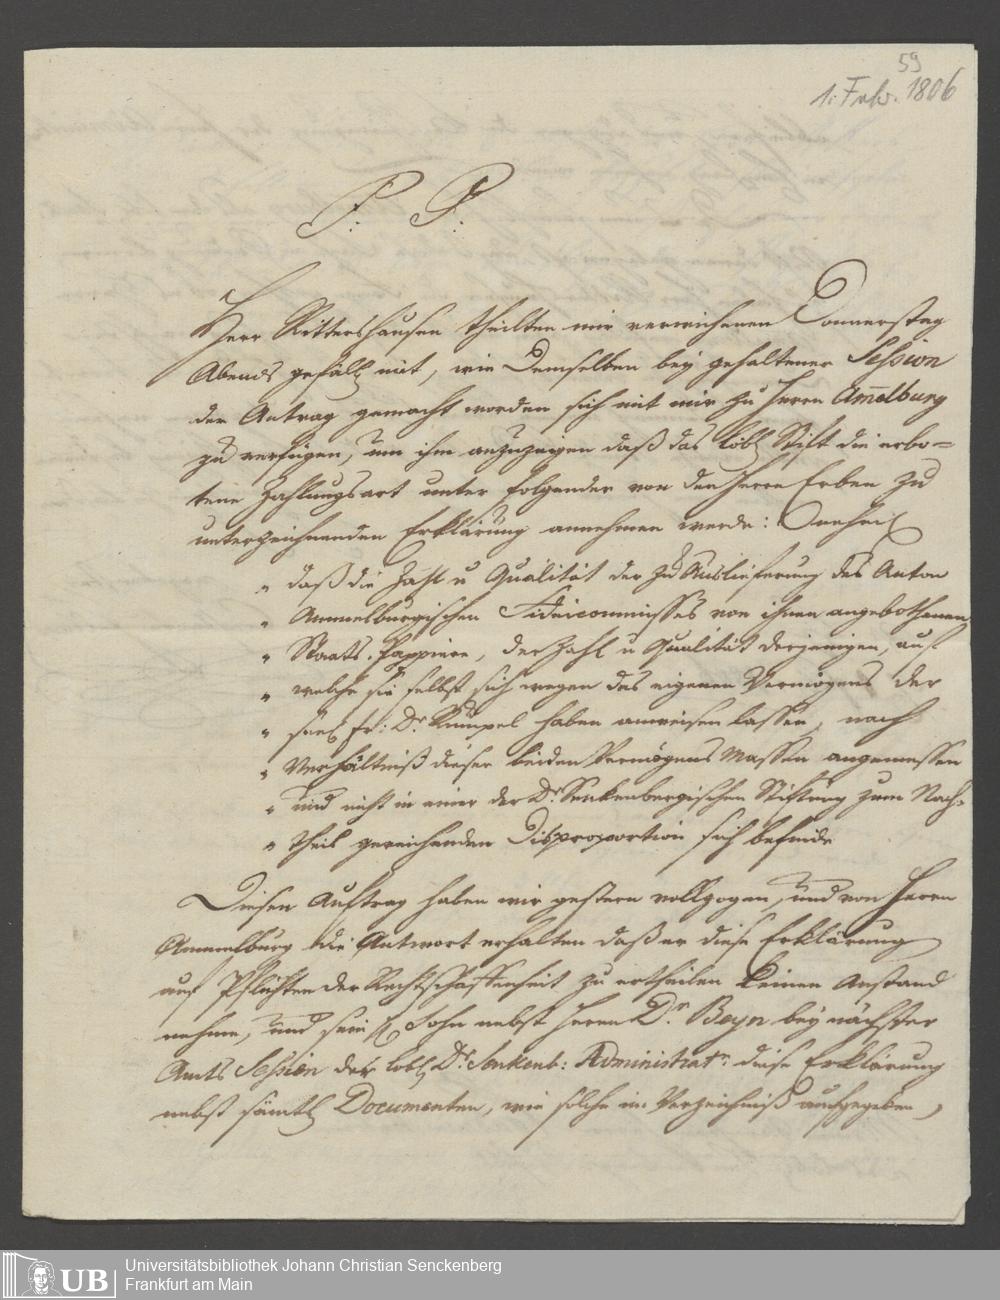 59
1. Febr. 1806
P. P.
Herr Rittershausen theilten mir verwichenen Donnerstag
Abends gefäll. mit, wie Demselben bey gehaltener Session
der Antrag gemacht worden sich mit mir zu Herrn Am̄elburg
zu verfügen, um ihm anzuzeigen daß das löbl. Stift die erbo=
tene Zahlungsart unter folgender von den Herrn Erben zu
unterzeichnenden Erklärung annehmen werde:
„ daß die Zahl u Qualität der zu Auslieferung des Anton
„ Ammelburgischen Fideicommisses von ihnen angebothenen
„ Staats-Pappiere, der Zahl u Qualität derjenigen, auf
„ welche sie selbst sich wegen des eigenen Vermögens der
„ seel. Fr: Dr. Kümpel haben anweisen lassen, nach
„ Verhältniß dieser beiden Vermögens Massen angemessen
„ und nicht in einer der Dr. Senkenbergischen Stiftung zum Nach=
„ theil gereichenden Disproportion sich befinde
Diesen Auftrag haben wir gestern vollzogen, und von Herrn
Ammelburg die Antwort erhalten daß er diese Erklärung
auf Pflichten der Rechtschaffenheit zu ertheilen keinen Anstand
nehme, und sein H. Sohn nebst Herrn Dr. Beyn bey nächster
Amts Session der löbl. Dr. Senkenb: Administrat: diese Erklärung
nebst sämtl. Documenten, wie solche im Verzeichniß aufgegeben,
UB
Universitätsbibliothek Johann Christian Senckenberg
Frankfurt am Main